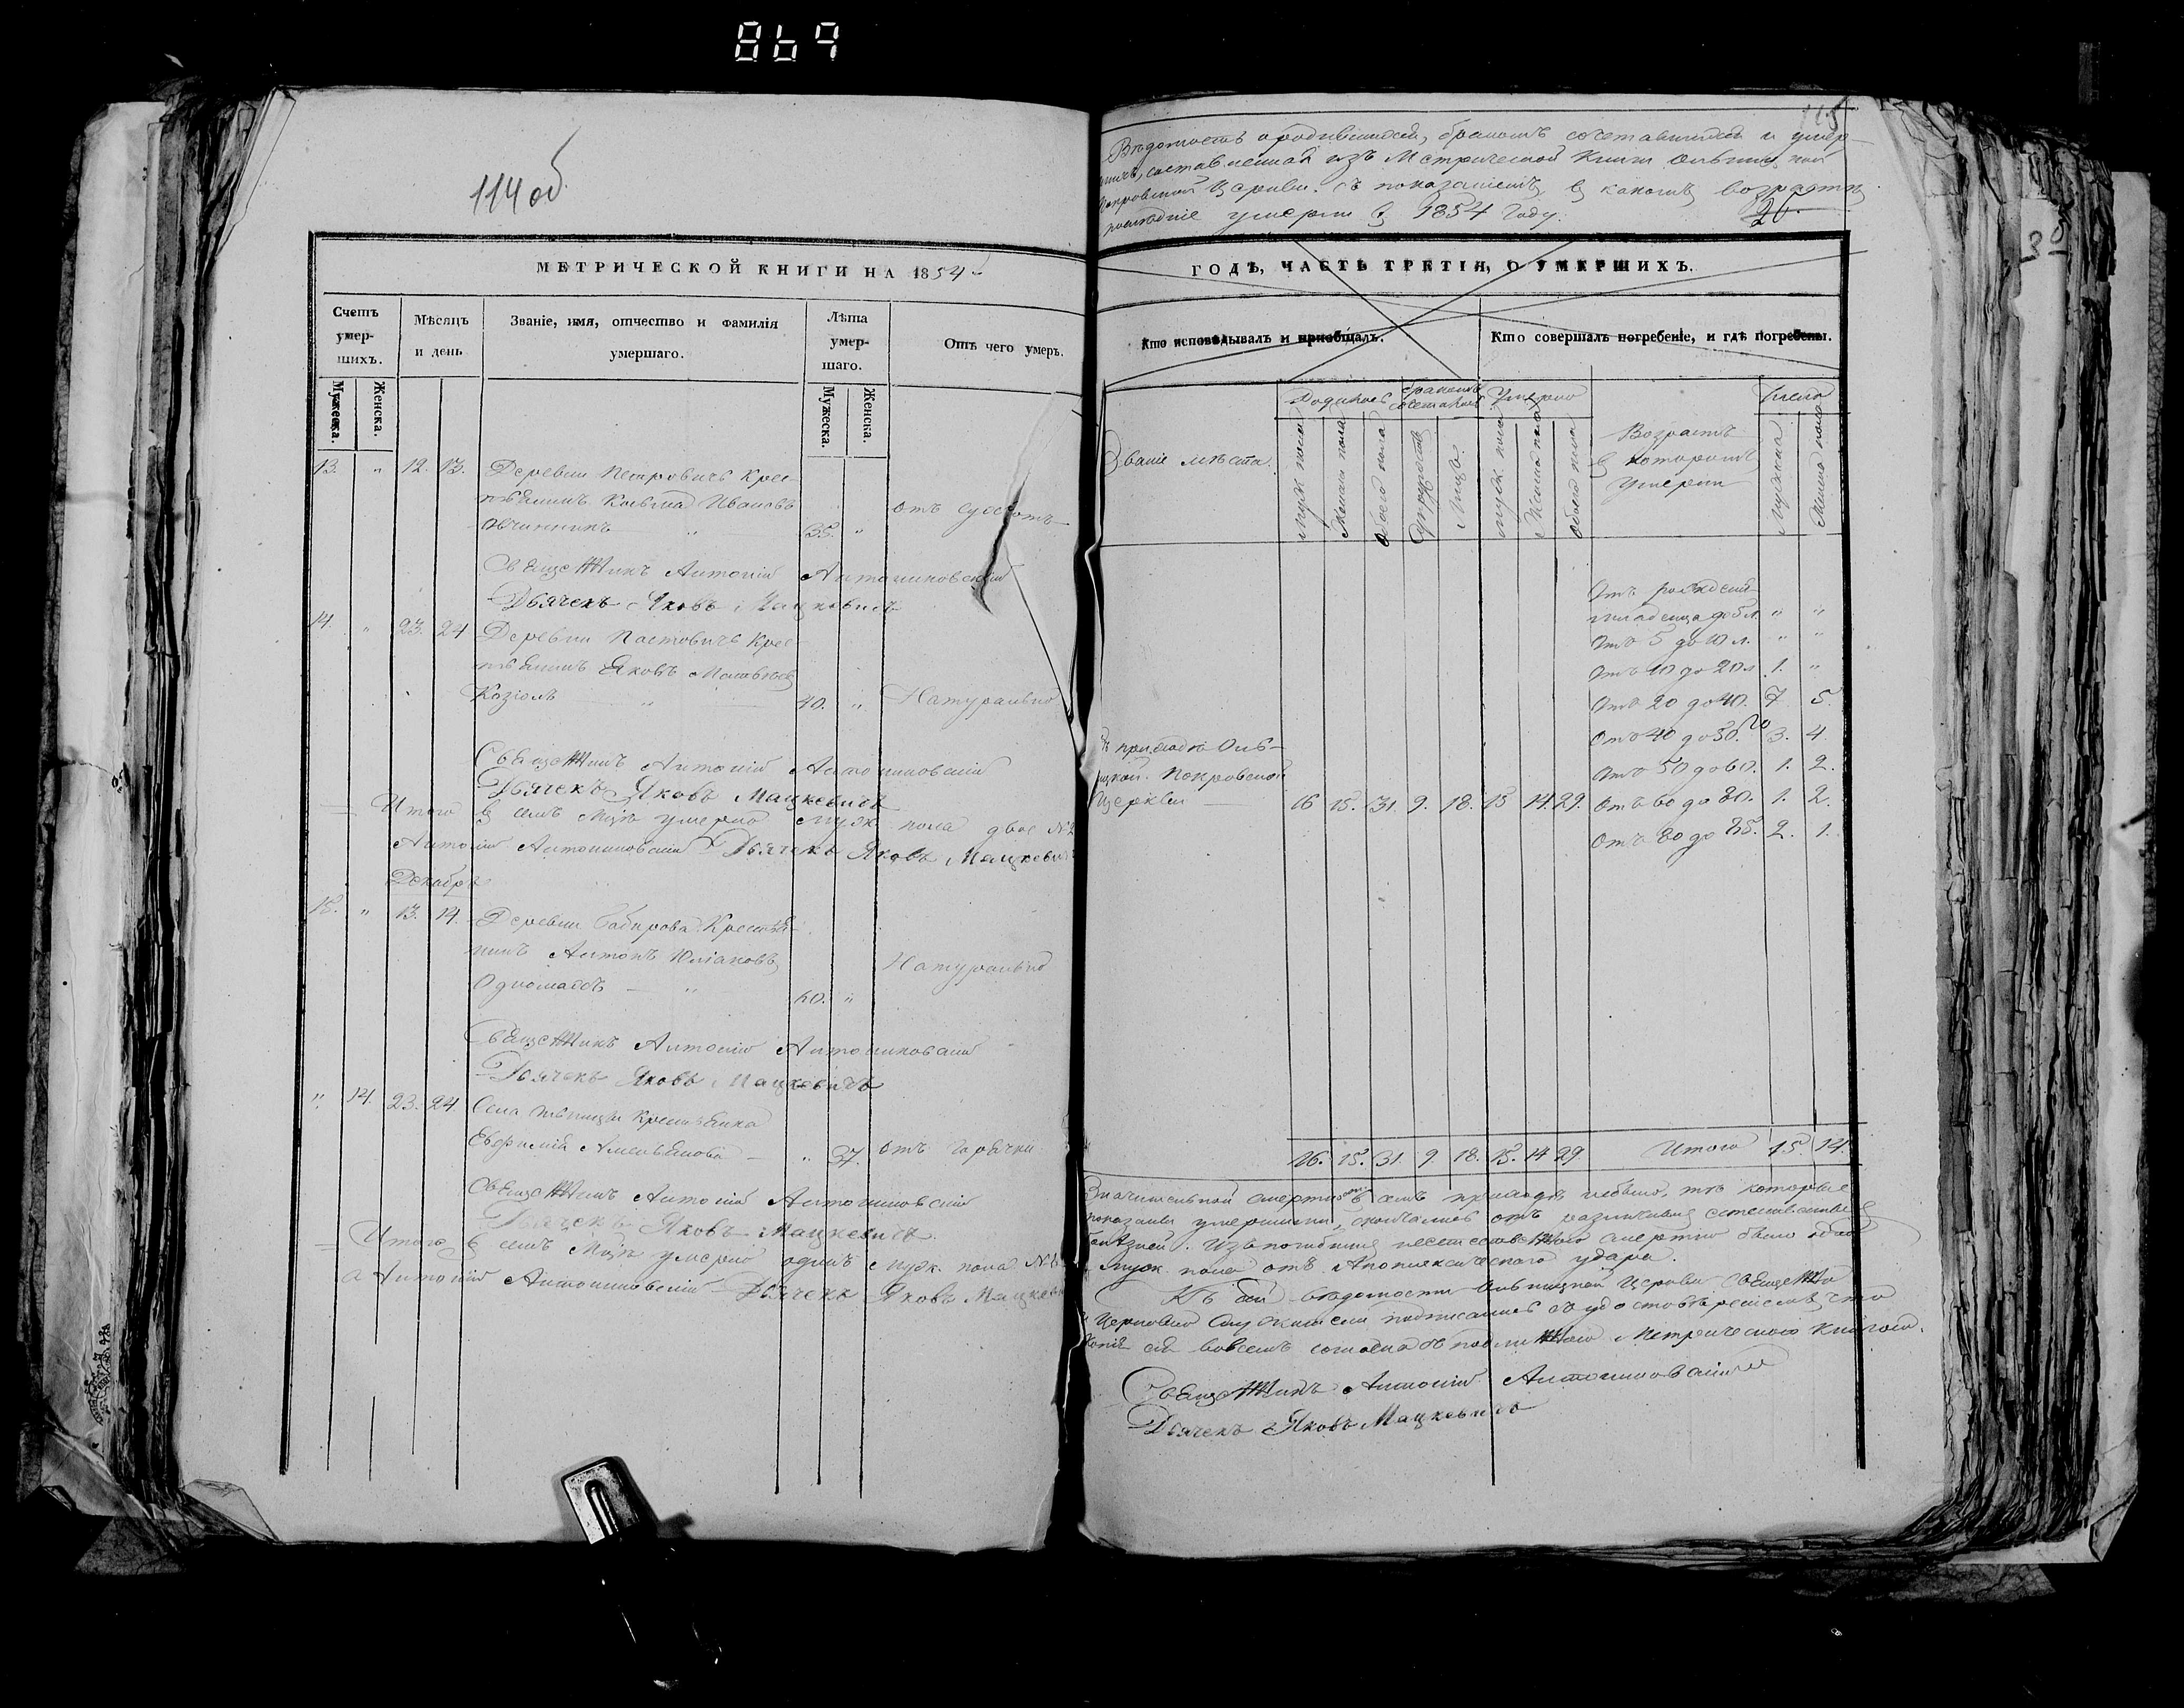 869
114 об.
МЕТРИЧЕСКОЙ КНИГИ НА 1854
Счетъ умер-шихъ.
Мѣсяцъ и день
Званіе, имя, отчество и фамилія умершаго.
Лѣта умер-шаго.
Отъ чего умеръ.
Мужеска.
Женска.
Мужеска.
Женска.
13. " 12. 13. Деревни Петровичъ Крес-
тьянинъ Козьма Ивановъ
Овчинникъ " 35. " отъ сухотъ
Священникъ Антоній Антониновскій
Дьячекъ Яковъ Мацкевичъ
14. " 23. 24 Деревни Крес-
тьянинъ Яковъ
Козіолъ " 40. " Натурально
Священникъ Антоній Антониновскій
Дьячекъ Яковъ Мацкевичъ
Итого въ семъ Мцѣ умерло муж. пола двое №2
Антоній Антониновскій Дьячекъ Яковъ Мацкевичъ
Декабрь
15. " 13. 14. Деревни Крестья-
нинъ Антонъ Юліановъ
60. " Натурально
Священникъ Антоній Антониновскій
Дьячекъ Яковъ Мацкевичъ
" 14. 23. 24 Села Крестьянка
Евфимія " 37. отъ горячки
Священникъ Антоній Антониновскій
Дьячекъ Яковъ Мацкевичъ
Итого въ семъ Мцѣ умерло одинъ муж. пола №1
Антоній Антониновскій Дьячекъ Яковъ Мацкевичъ
115
Вѣдомость о родившихся, бракомъ сочетавшихся и умер-
шихъ, составленная изъ Метрической Книги
Покровской Церкви. съ показаніемъ въ какомъ возрастѣ
послѣдніе умерли въ 1854 Году.
26.
ГОДЪ, ЧАСТЬ ТРЕТІЯ, О УМЕРШИХЪ.
Кто исповѣдывалъ и пріобщалъ.
Кто совершалъ погребеніе, и гдѣ погребены.
Званіе мѣста.
Родилось
бракомъ сочеталось
Умерло
Возрастъ въ которомъ умерли
Число
муж. пола
Женск. пола
обоего пола
Супружествъ
Лицъ.
муж. пола
Женск. пола
обоего пола
мужска
Женск. пола
Отъ рожденія
младенца до 5 л. " "
Отъ 5 до 10 л. " "
Отъ 10 до 20 л. 1. "
Отъ 20 до 40. 7. 5.
Отъ 40 до 50. 3. 4.
Отъ 50 до 60. 1. 2.
Отъ 60 до 80. 1. 2.
Отъ 80 до 85. 2. 1.
Покровской
Церкви 16 15. 31. 9. 18. 15 14. 29.
16. 15. 31. 9. 18. 15. 14 29 Итого 15. 14.
Значительной смертности въ семъ приходѣ небыло, тѣ которые
показаны умершими, скончались отъ различныхъ естественныхъ
болѣзней. Изъ погибшихъ неестественною смертію было одно
муж. пола отъ Апоплексическаго удара.
Къ сей вѣдомости Церкви Священно
и Церковно Служители подписались съ удостовѣреніемъ, что
Копія сія вовсемъ согласна съ подлинною Метрическою Книгою.
Священникъ Антоній Антониновскій
Дьячекъ Яковъ Мацкевичъ